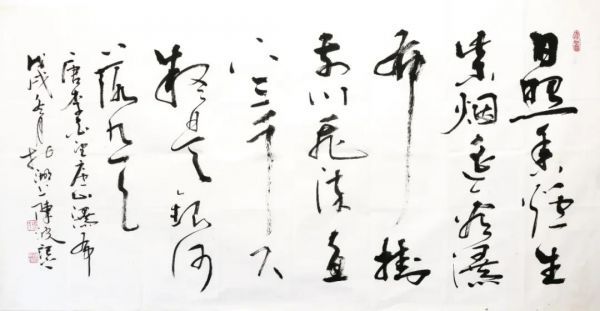 日照香炉生
紫烟遥看瀑
布挂
前川飞流直
下三千尺
疑是银河
落九天
唐李白望庐山瀑布
戊戌冬月
陈波